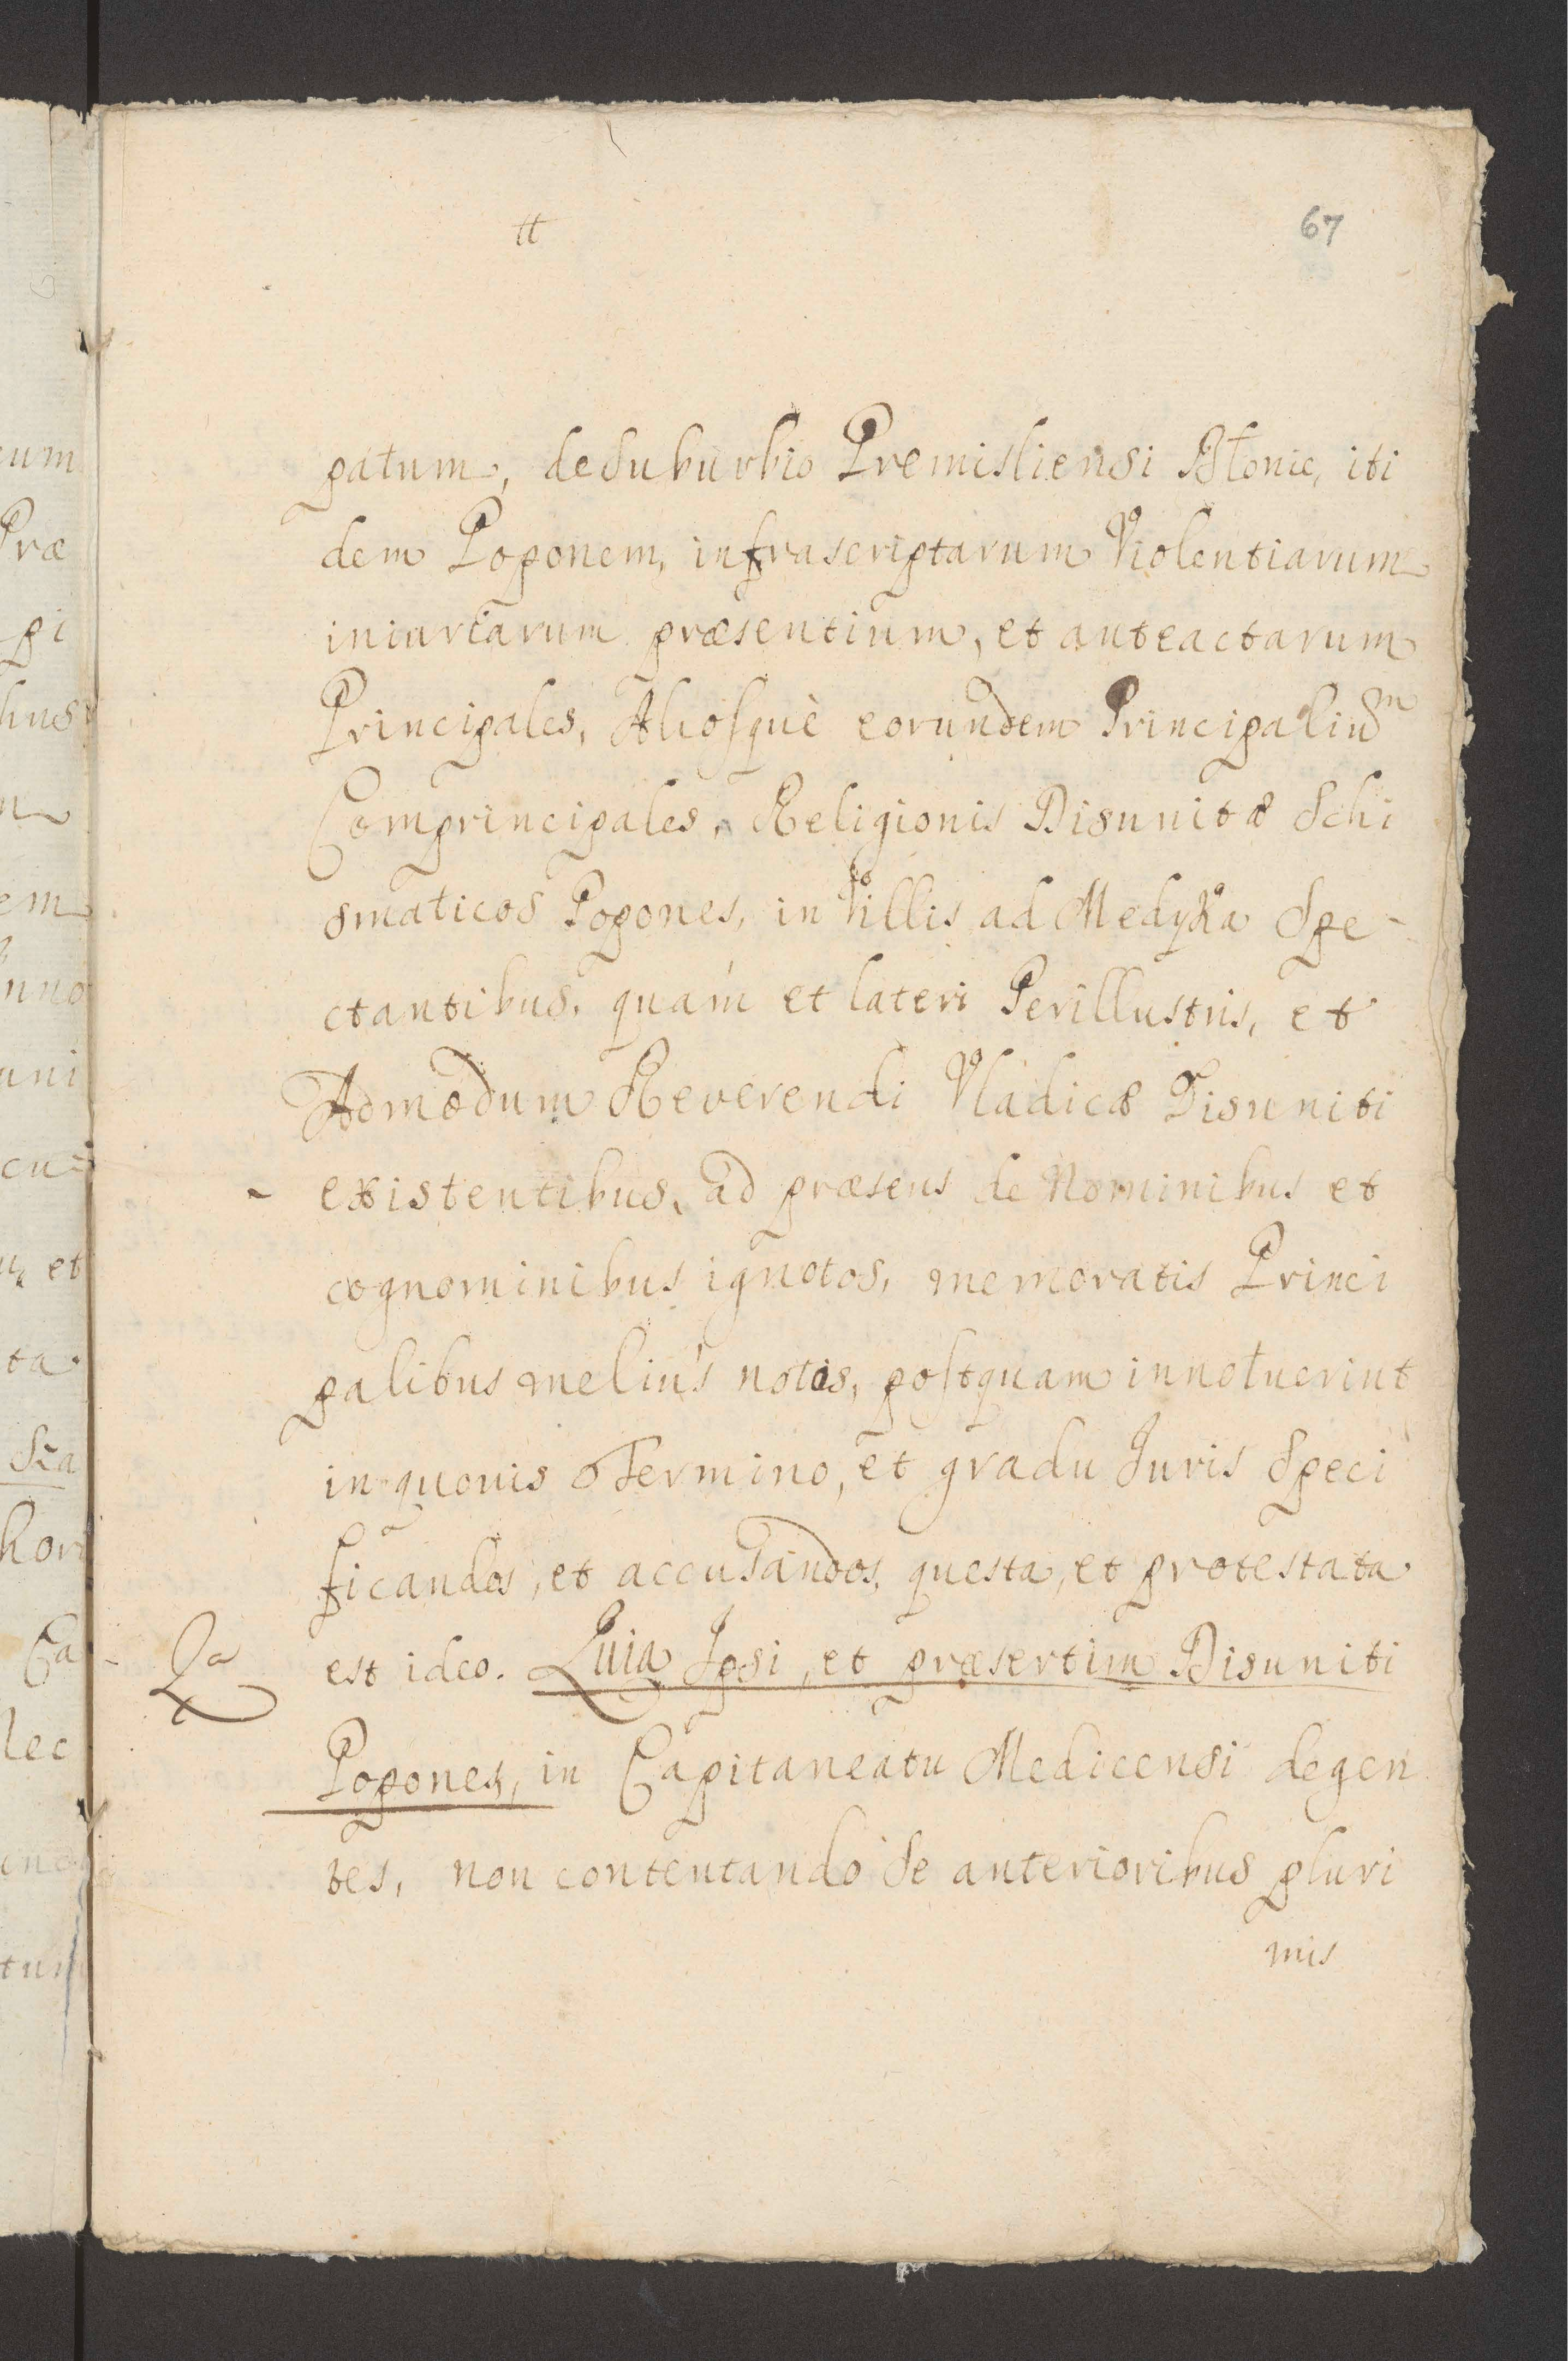 67
patum, de suburbio Premisliensi Błonie, iti
dem Poponem, infrascriptarum Violentiarum
iniuriarum præsentium, et anteactarum
Principales, Aliosquè eorundem Principaliũm
Comprincipales, Religionis Disunitæ Schi
smaticos Popones, in Villis ad Medyka Spe-
ctantibus, quám et lateri Perillustris, et
Admodum Reverendi Vladicæ Disuniti
existentibus, ad præsens de Nominibus et
cognominibus ignotos, memoratis Princi
palibus meliús notos, postquam innotuerint
in quouis Termino, et gradu Juris Speci
ficandos, et accusandos, questa, et protestata
Qa
est ideo. Quia Ipsi, et præsertim Disuniti
Popones, in Capitaneatu Medicensi degen
tes, non contentando Se anterioribus pluri
mis